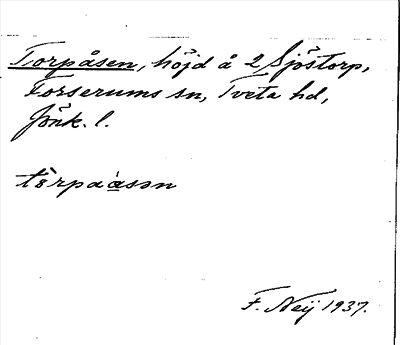 Torpåsen, höjd å 2 Sjöstorp,
Forserums sn, Tveta hd,
Jönk. l.
tòrpaåsən
F. Neij 1937.